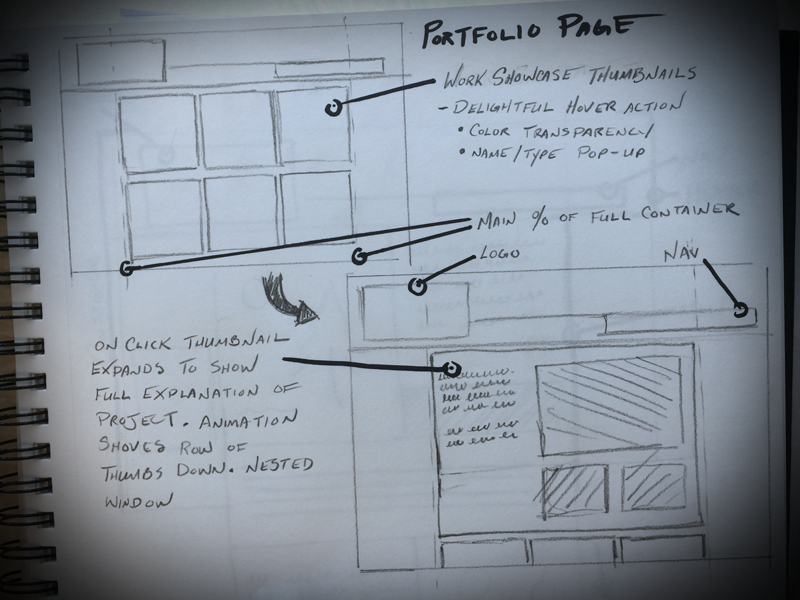 PORTFOLIO PAGE
WORK SHOWCASE THUMBNAILS
- DELIGHTFUL HOVER ACTION
• COLOR TRANSPARENCY
• NAME/TYPE POP-UP
MAIN % OF FULL CONTAINER
LOGO
NAV
ON CLICK THUMBNAIL
EXPANDS TO SHOW
FULL EXPLANATION OF
PROJECT. ANIMATION
SHOVES ROW OF
THUMBS DOWN. NESTED
WINDOW